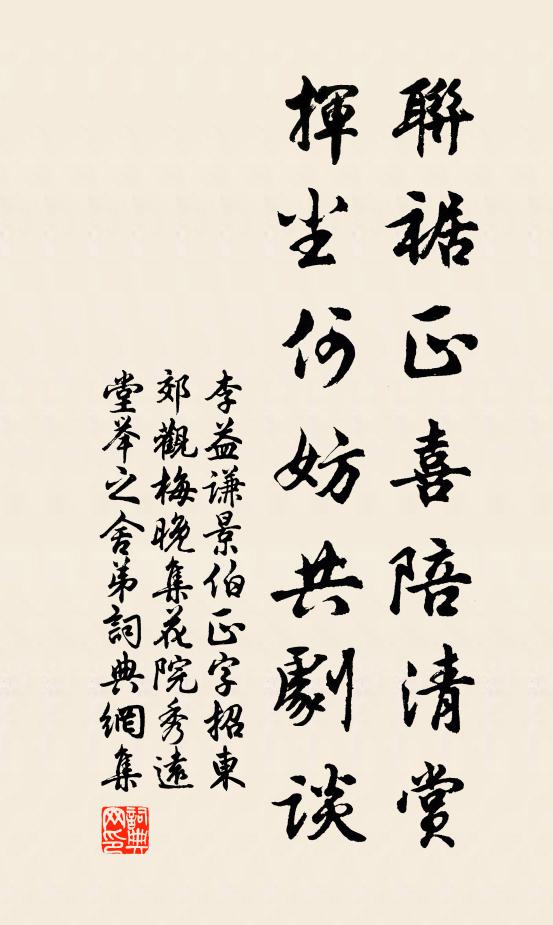 聯裾正喜陪清賞
揮坐何妨共劇談
李益謙景伯正字招東
郊觀梅晚集花院秀遠
堂举之舍弟詞典網集
詞典
网印